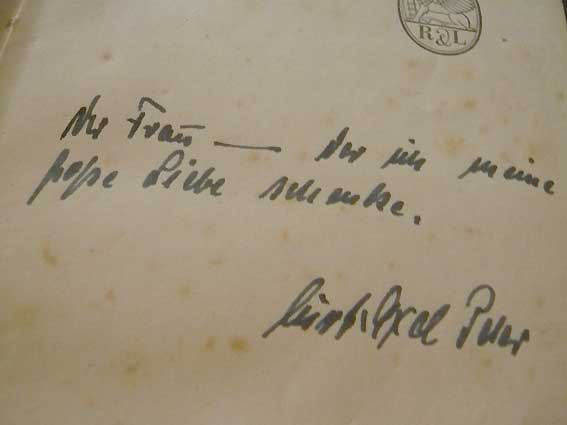 R & L
Der Frau — der ich meine
große Liebe schenke.
Axel Peter